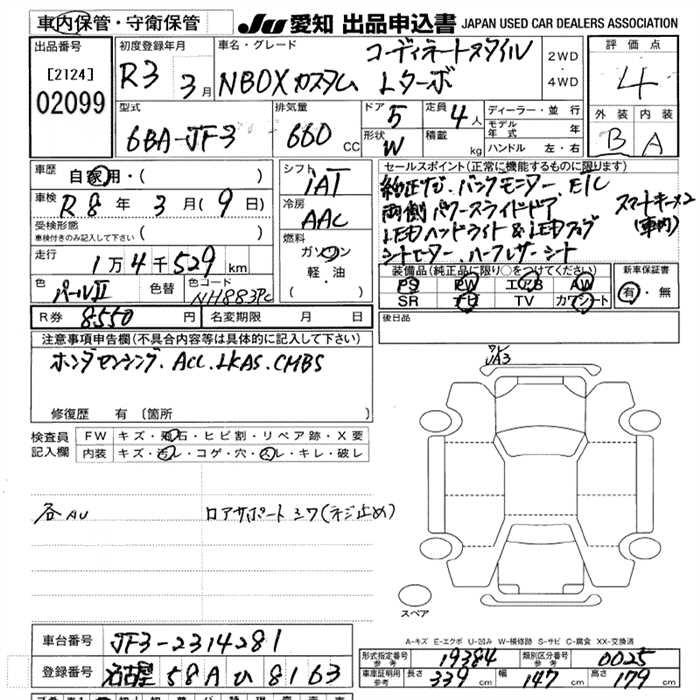 車内保管・守衛保管
JU 愛知 出品申込書 JAPAN USED CAR DEALERS ASSOCIATION
出品番号
[2124]
02099
初度登録年月
R3 3月
車名・グレード
コーディネートスタイル
NBOXカスタム Lターボ
2WD
4WD
評価点
4
外装 内装
B A
型式
6BA-JF3
排気量
660 CC
ドア 5
形状 W
定員 4人
積載 kg
ディーラー・並行
モデル年式 年
ハンドル 左・右
車歴 自家用・( )
車検 R8年3月(9日)
受検形態
車検付きのみ記入して下さい ( )
走行
1万4千529km
色 パールII 色替
色コード NH883PC
R券 8550円 名変期限 月 日
シフト
IAT
冷房
AAC
燃料
ガソリン
軽・油
( )
セールスポイント(正常に機能するものに限ります)
純正ナビ.バックモニター.ETC
両側パワースライドドア
LEDヘッドライト&LEDフォグ
シートヒーター.ハーフレザーシート
スマートキー×2
(車内)
装備品(純正品に限り○をつけてください)
PS PW エアB AW
SR ナビ TV カワシート
新車保証書
有・無
後日品
注意事項申告欄(不具合内容等は具体的に記入して下さい)
ホンダセンシング.ACC.LKAS.CMBS
修復歴 有 〔箇所
検査員記入欄
FW キズ・飛石・ヒビ割・リペア跡・X要
内装 キズ・汚レ・コゲ・穴・スレ・キレ・破レ
各AU
ロアサポートシワ(ネジ止め)
A3
スペア
A-キズ E-エクボ U-凹み W-補修跡 S-サビ C-腐食 XX-交換済
車台番号 JF3-2314281
登録番号 名古屋 58A ひ 8163
形式指定番号 参考 19384
類別区分番号 参考 0025
車庫証明用 参考 長さ 339cm 幅 147cm 高さ 179cm